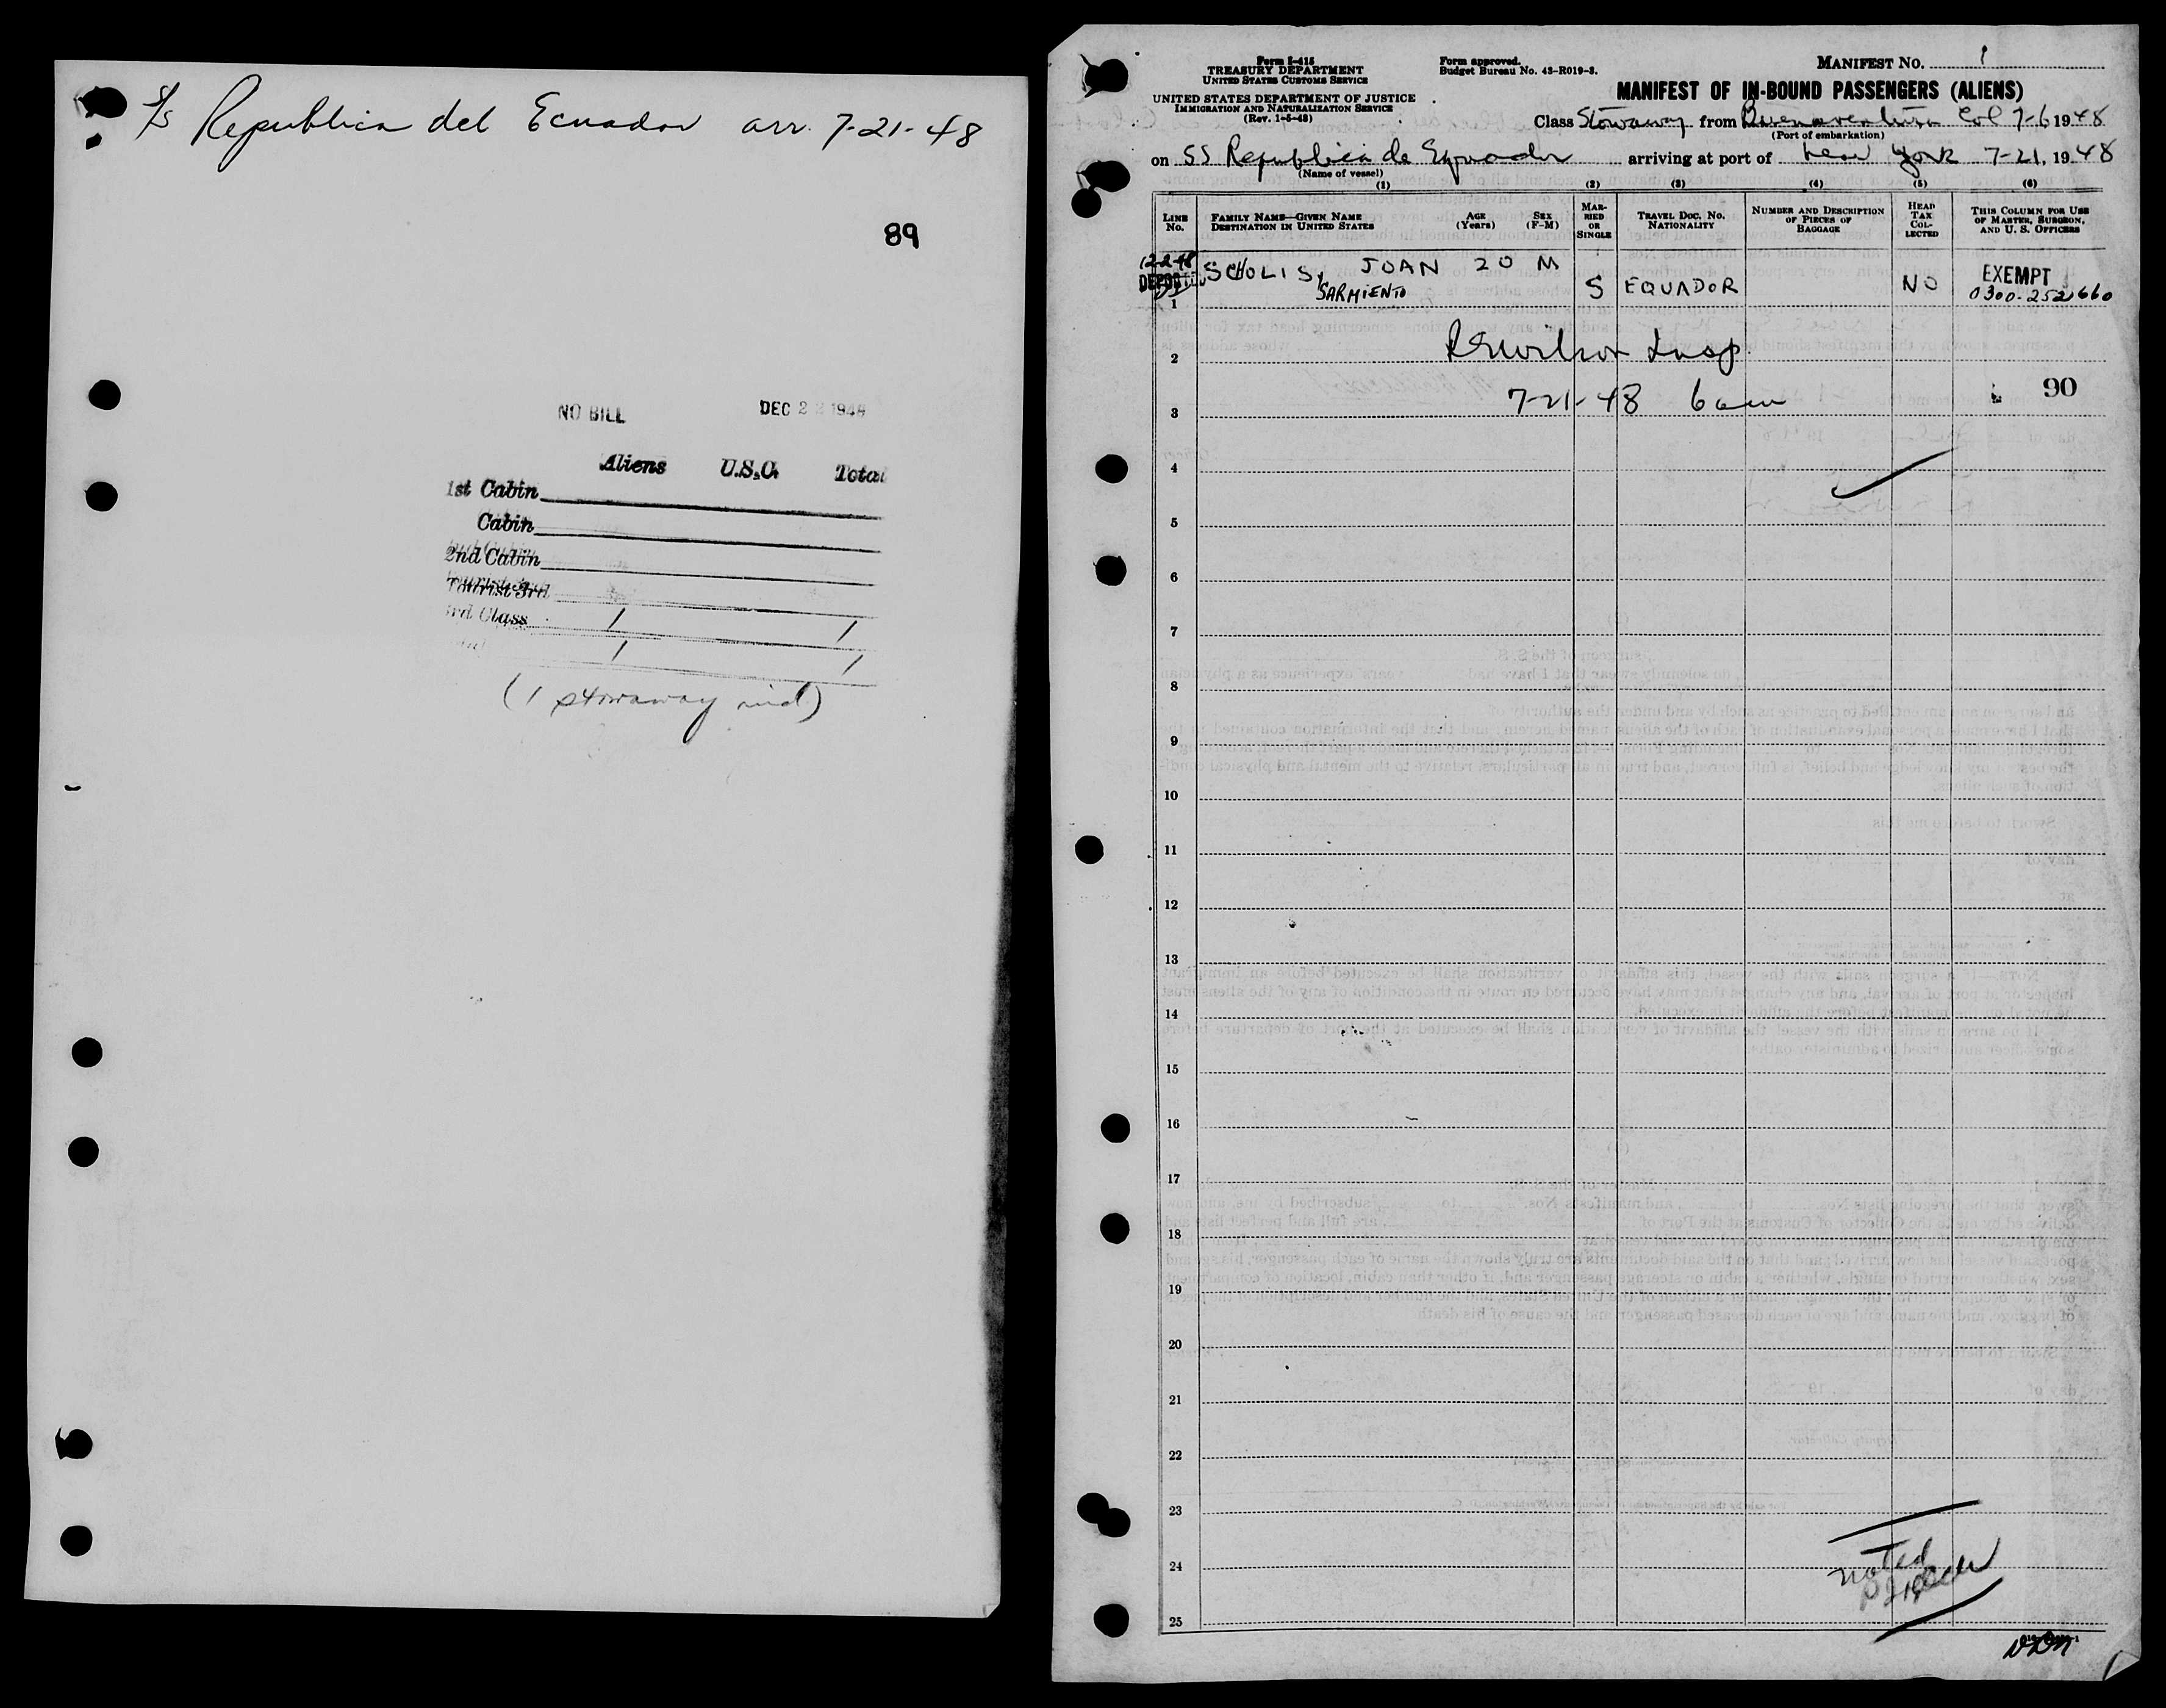 S/s Republica del Ecuador arr. 7-21-48
89
NO BILL DEC 2 1948
Aliens U.S.C. Total
1st Cabin
Cabin
2nd Cabin
Tourist 3rd
3rd Class 1 1
1 1
(1 stowaway incl)
Form I-415
TREASURY DEPARTMENT
UNITED STATES CUSTOMS SERVICE
UNITED STATES DEPARTMENT OF JUSTICE
IMMIGRATION AND NATURALIZATION SERVICE
(Rev. 1-5-48)
Form approved.
Budget Bureau No. 43-R019-3.
MANIFEST NO. 1
MANIFEST OF IN-BOUND PASSENGERS (ALIENS)
Class Stowaway from Buenaventura Col 7-6 1948
(Port of embarkation)
on SS Republica de Equador arriving at port of New York 7-21, 1948
(Name of vessel)
(1) (2) (3) (4) (5) (6)
LINE No. FAMILY NAME—GIVEN NAME DESTINATION IN UNITED STATES AGE (Years) SEX (F-M) MARRIED OR SINGLE TRAVEL DOC. NO. NATIONALITY NUMBER AND DESCRIPTION OF PIECES OF BAGGAGE HEAD TAX COLLECTED THIS COLUMN FOR USE OF MASTER, SURGEON, AND U. S. OFFICERS
12-2-48
DEPORTED
SCHOLIS, JUAN 20 M
SARMIENTO
1 S EQUADOR NO EXEMPT
0300-252660
2 Wilson Insp.
7-21-48 6 am 90
3
4
5
6
7
8
9
10
11
12
13
14
15
16
17
18
19
20
21
22
23
24 noted
25